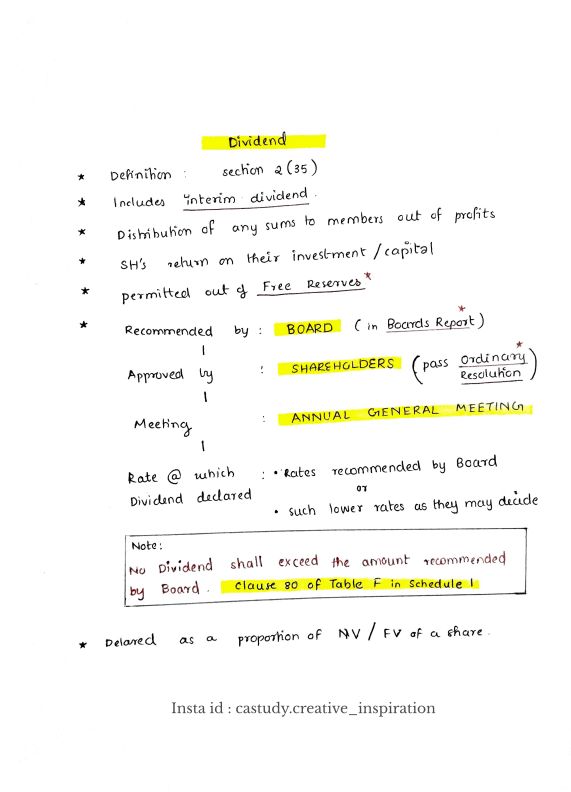 Dividend
* Definition : section 2(35)
* Includes interim dividend.
* Distribution of any sums to members out of profits
* SH's return on their investment / capital
* permitted out of Free Reserves*
* Recommended by : BOARD ( in Boards Report* )
Approved by : SHAREHOLDERS ( pass Ordinary* Resolution )
Meeting : ANNUAL GENERAL MEETING
Rate @ which : • Rates recommended by Board
Dividend declared or
• such lower rates as they may decide
Note:
No Dividend shall exceed the amount recommended
by Board. Clause 80 of Table F in Schedule I
* Delared as a proportion of NV / FV of a share.
Insta id : castudy.creative_inspiration